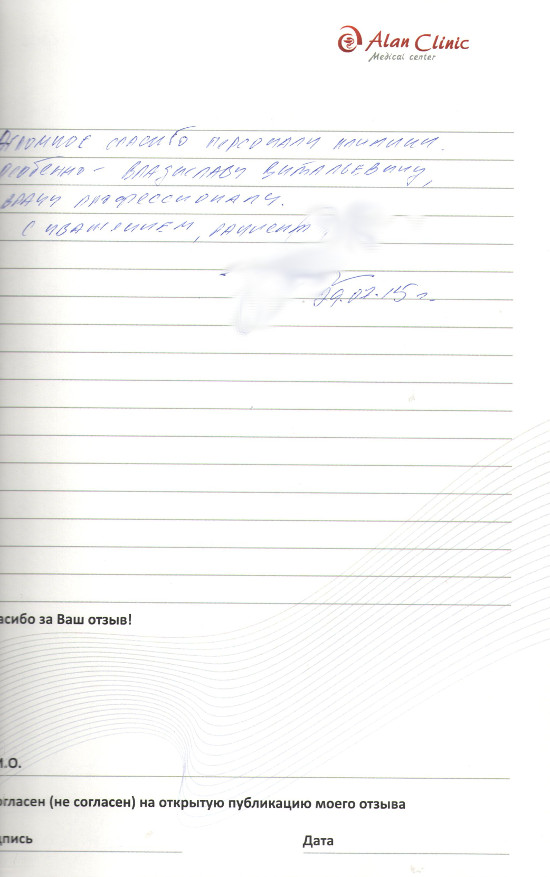 Alan Clinic
Medical center
Огромное спасибо персоналу клиники.
Особенно – Владиславу Витальевичу,
врачу профессионалу.
С уважением, пациент
29.07.15 г.
асибо за Ваш отзыв!
И.О.
огласен (не согласен) на открытую публикацию моего отзыва
дпись
Дата